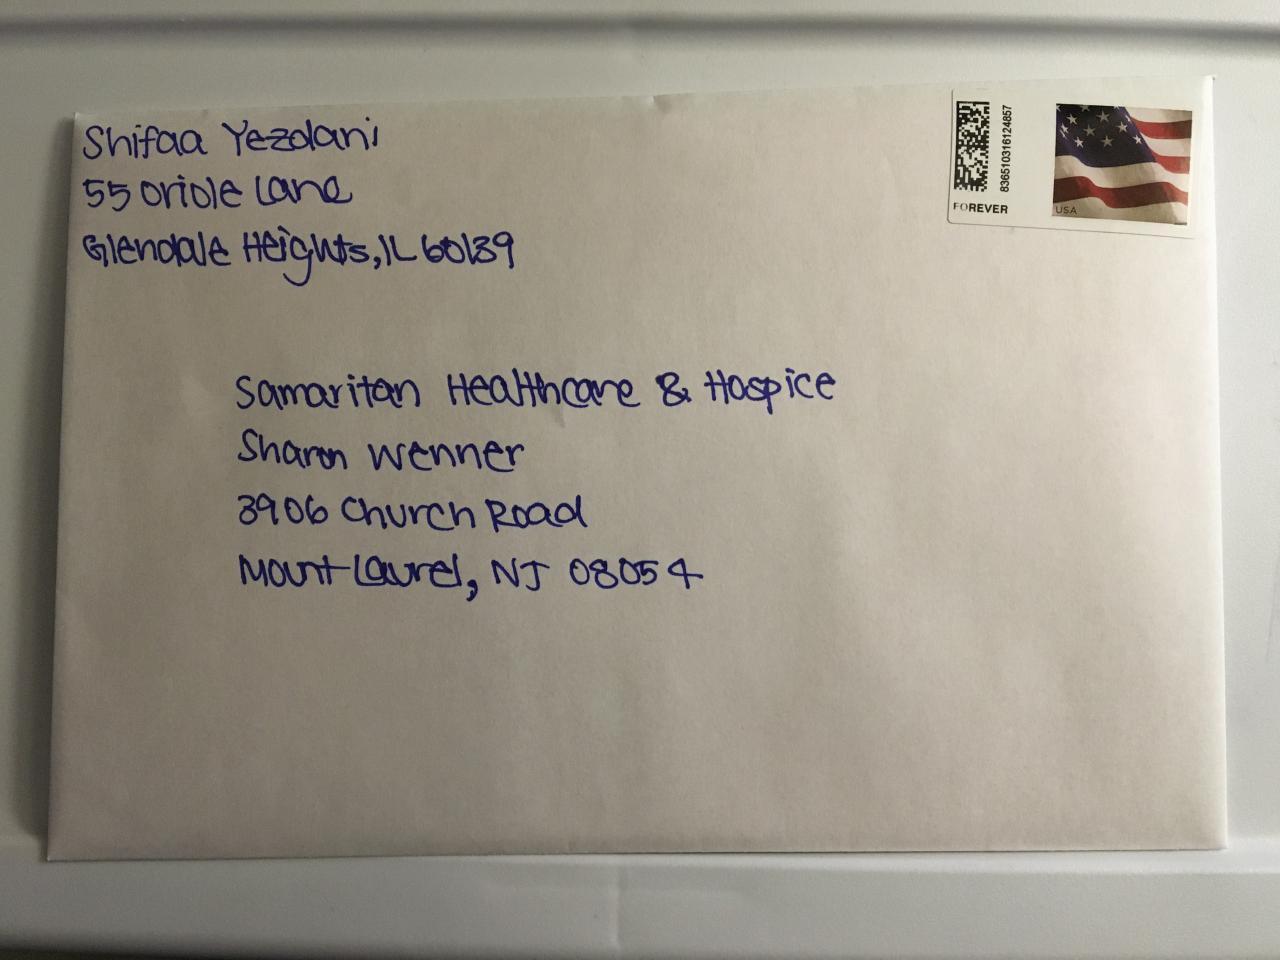 Shifaa Yezdani
55 Oriole Lane
Glendale Heights, IL 60139
836510316124857
FOREVER
USA
Samaritan Healthcare & Hospice
Sharon Wenner
3906 Church Road
Mount Laurel, NJ 08054